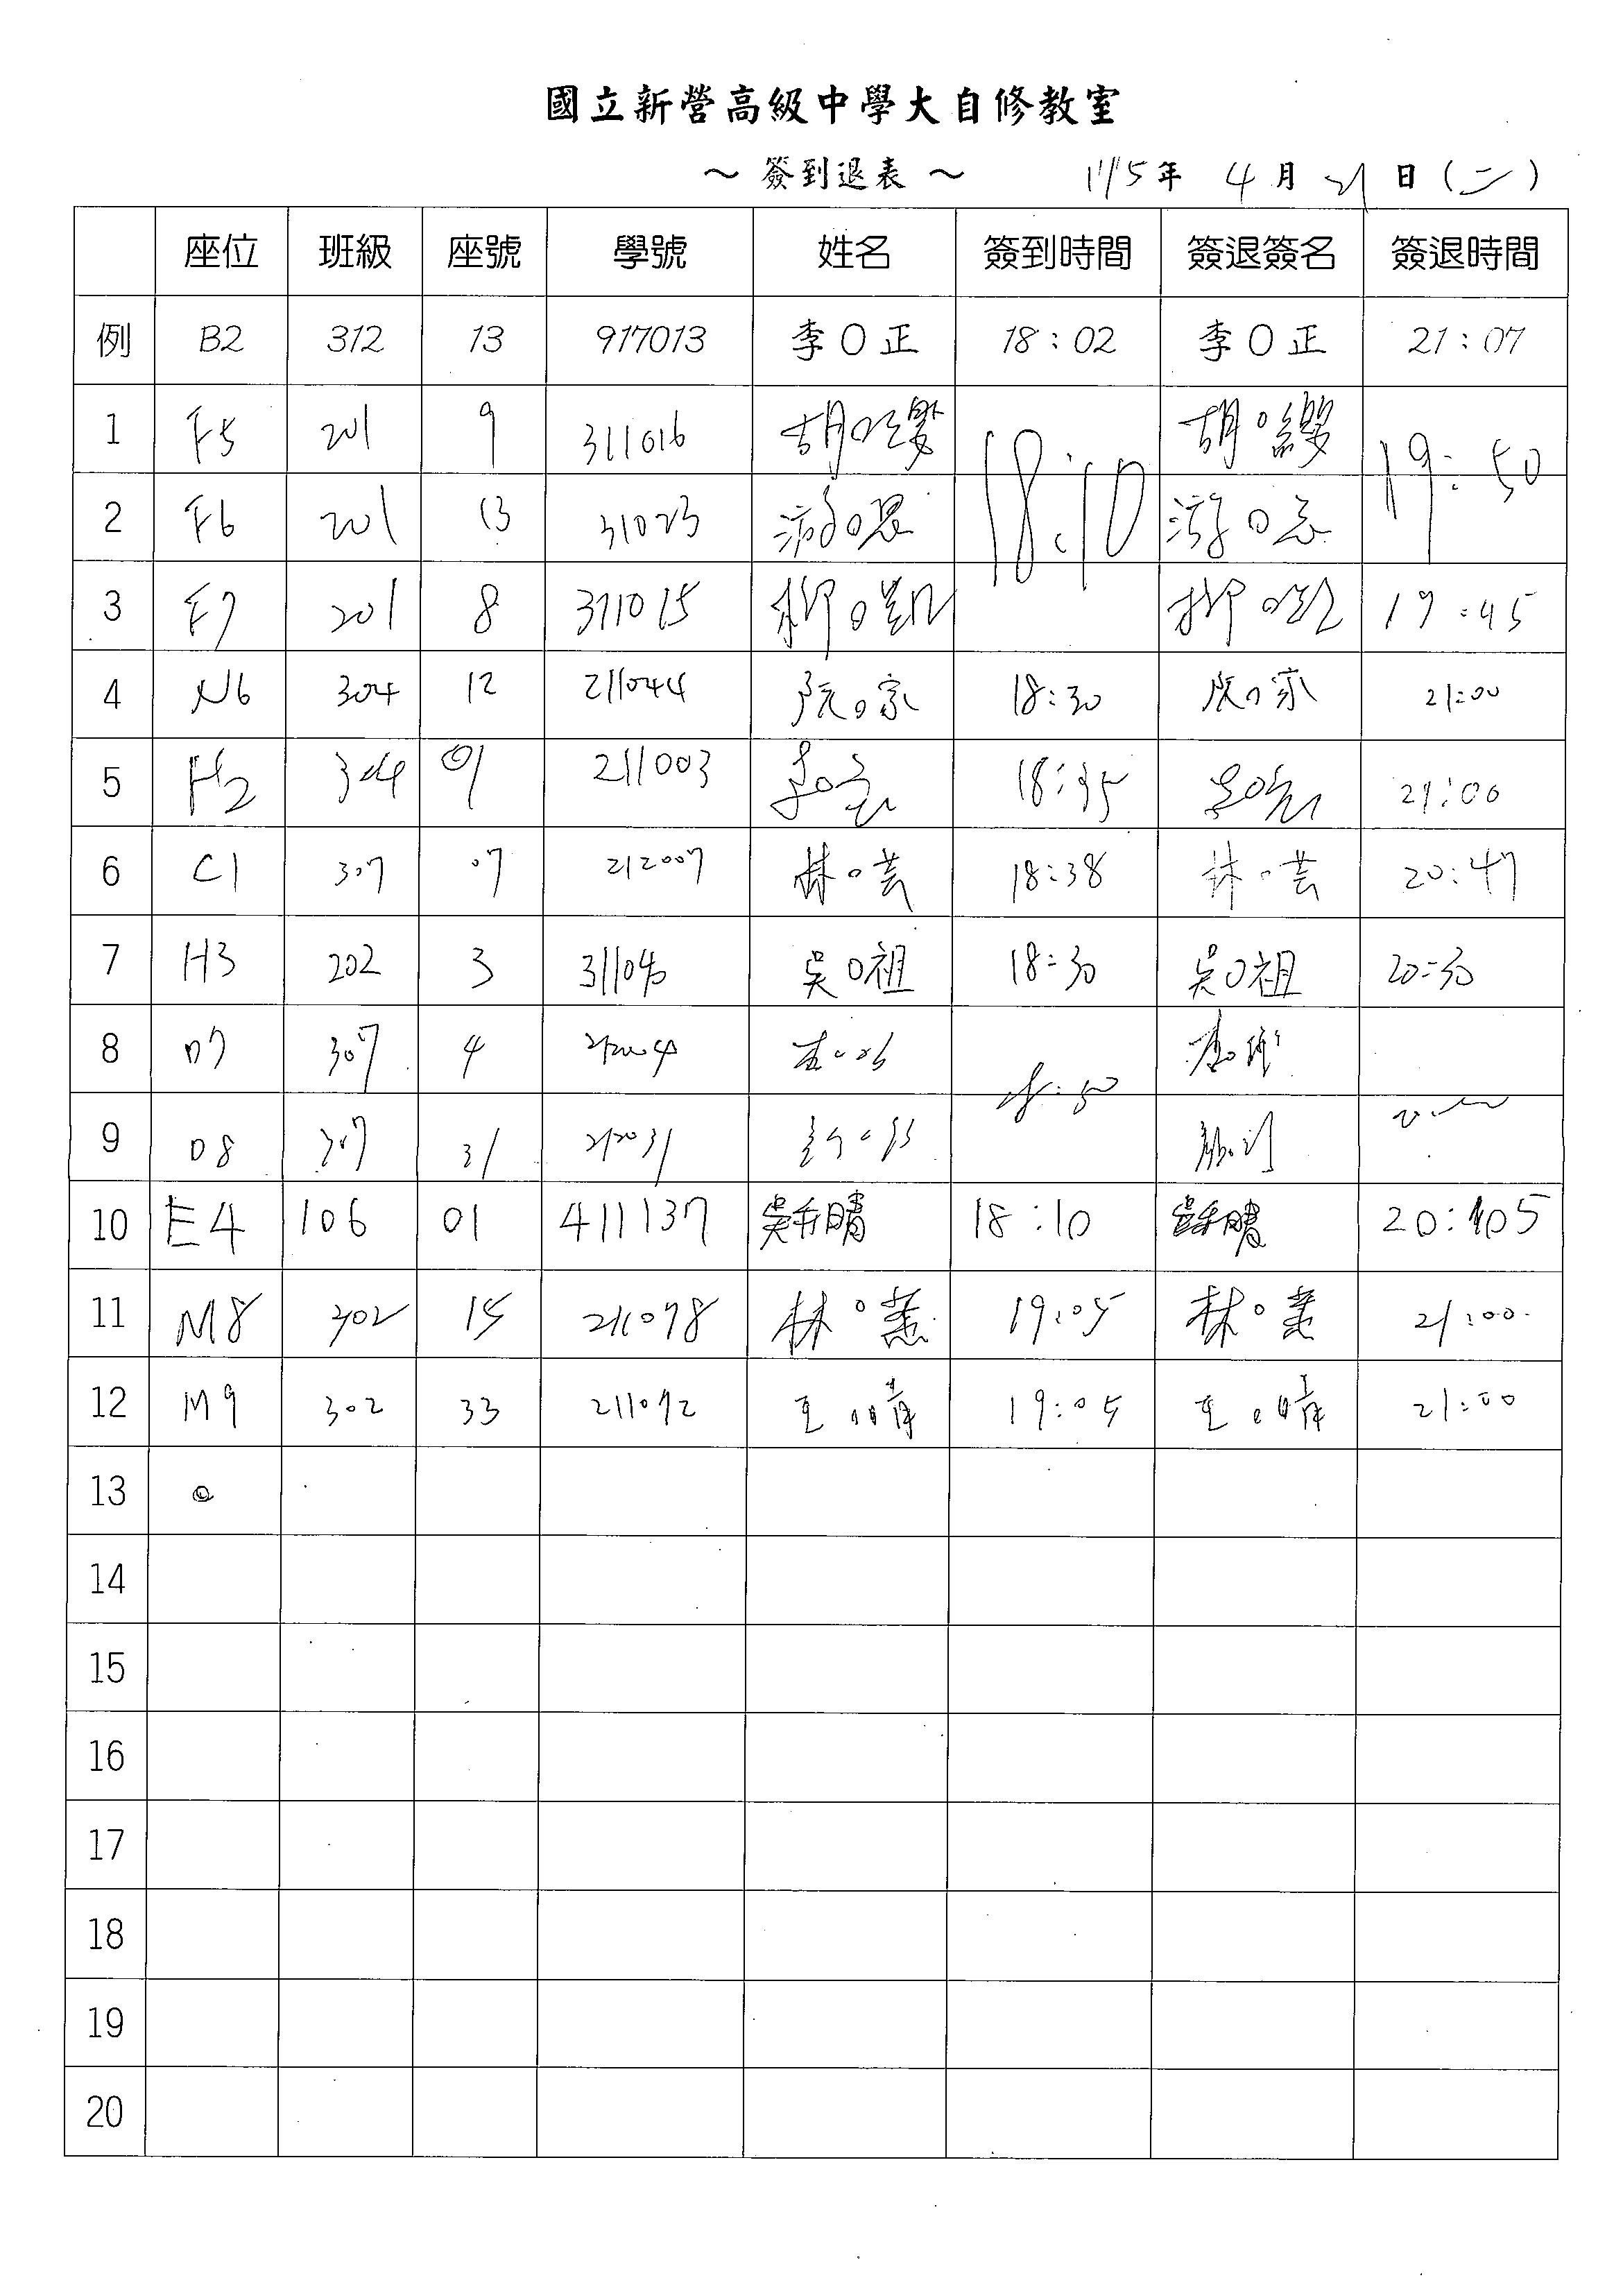 國立新營高級中學大自修教室
～ 簽到退表 ～ 115年 4月 21日(二)
座位 班級 座號 學號 姓名 簽到時間 簽退簽名 簽退時間
例 B2 312 13 917013 李O正 18:02 李O正 21:07
1 F5 201 9 311016 胡O 18:10 胡O 19:50
2 F6 201 13 31023 游O恩 游O恩
3 F7 201 8 311015 柳O凱 柳O凱 19:45
4 N6 304 12 211044 阮O家 18:30 阮O家 21:00
5 H2 304 01 211003 18:35 21:00
6 C1 307 07 212007 林O芸 18:38 林O芸 20:47
7 H3 202 3 311040 吳O祖 18:30 吳O祖 20:30
8 D7 307 4 212004 18:50
9 D8 307 31 212031
10 E4 106 01 411137 18:10 20:05
11 M8 302 15 211078 林O蕙 19:05 林O蕙 21:00
12 M9 302 33 211092 王O晴 19:05 王O晴 21:00
13
14
15
16
17
18
19
20